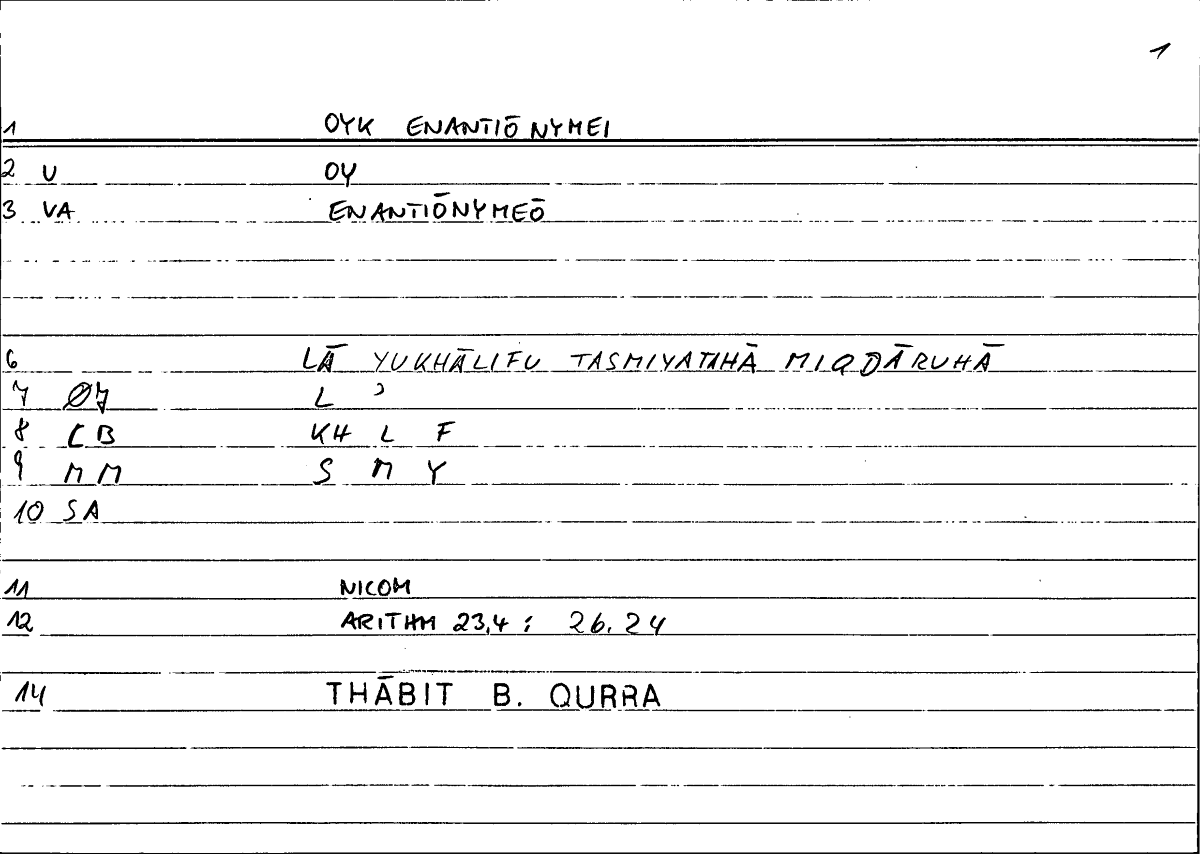 1
1 OYK ENANTIŌNYMEI
2 U OY
3 VA ENANTIŌNYMEŌ
6 LĀ YUKHĀLIFU TASMIYATAHĀ MIQDĀRUHĀ
7 Ø7 L ʾ
8 CB KH L F
9 MM S M Y
10 SA
11 NICOM
12 ARITHM 23,4 : 26.24
14 THĀBIT B. QURRA